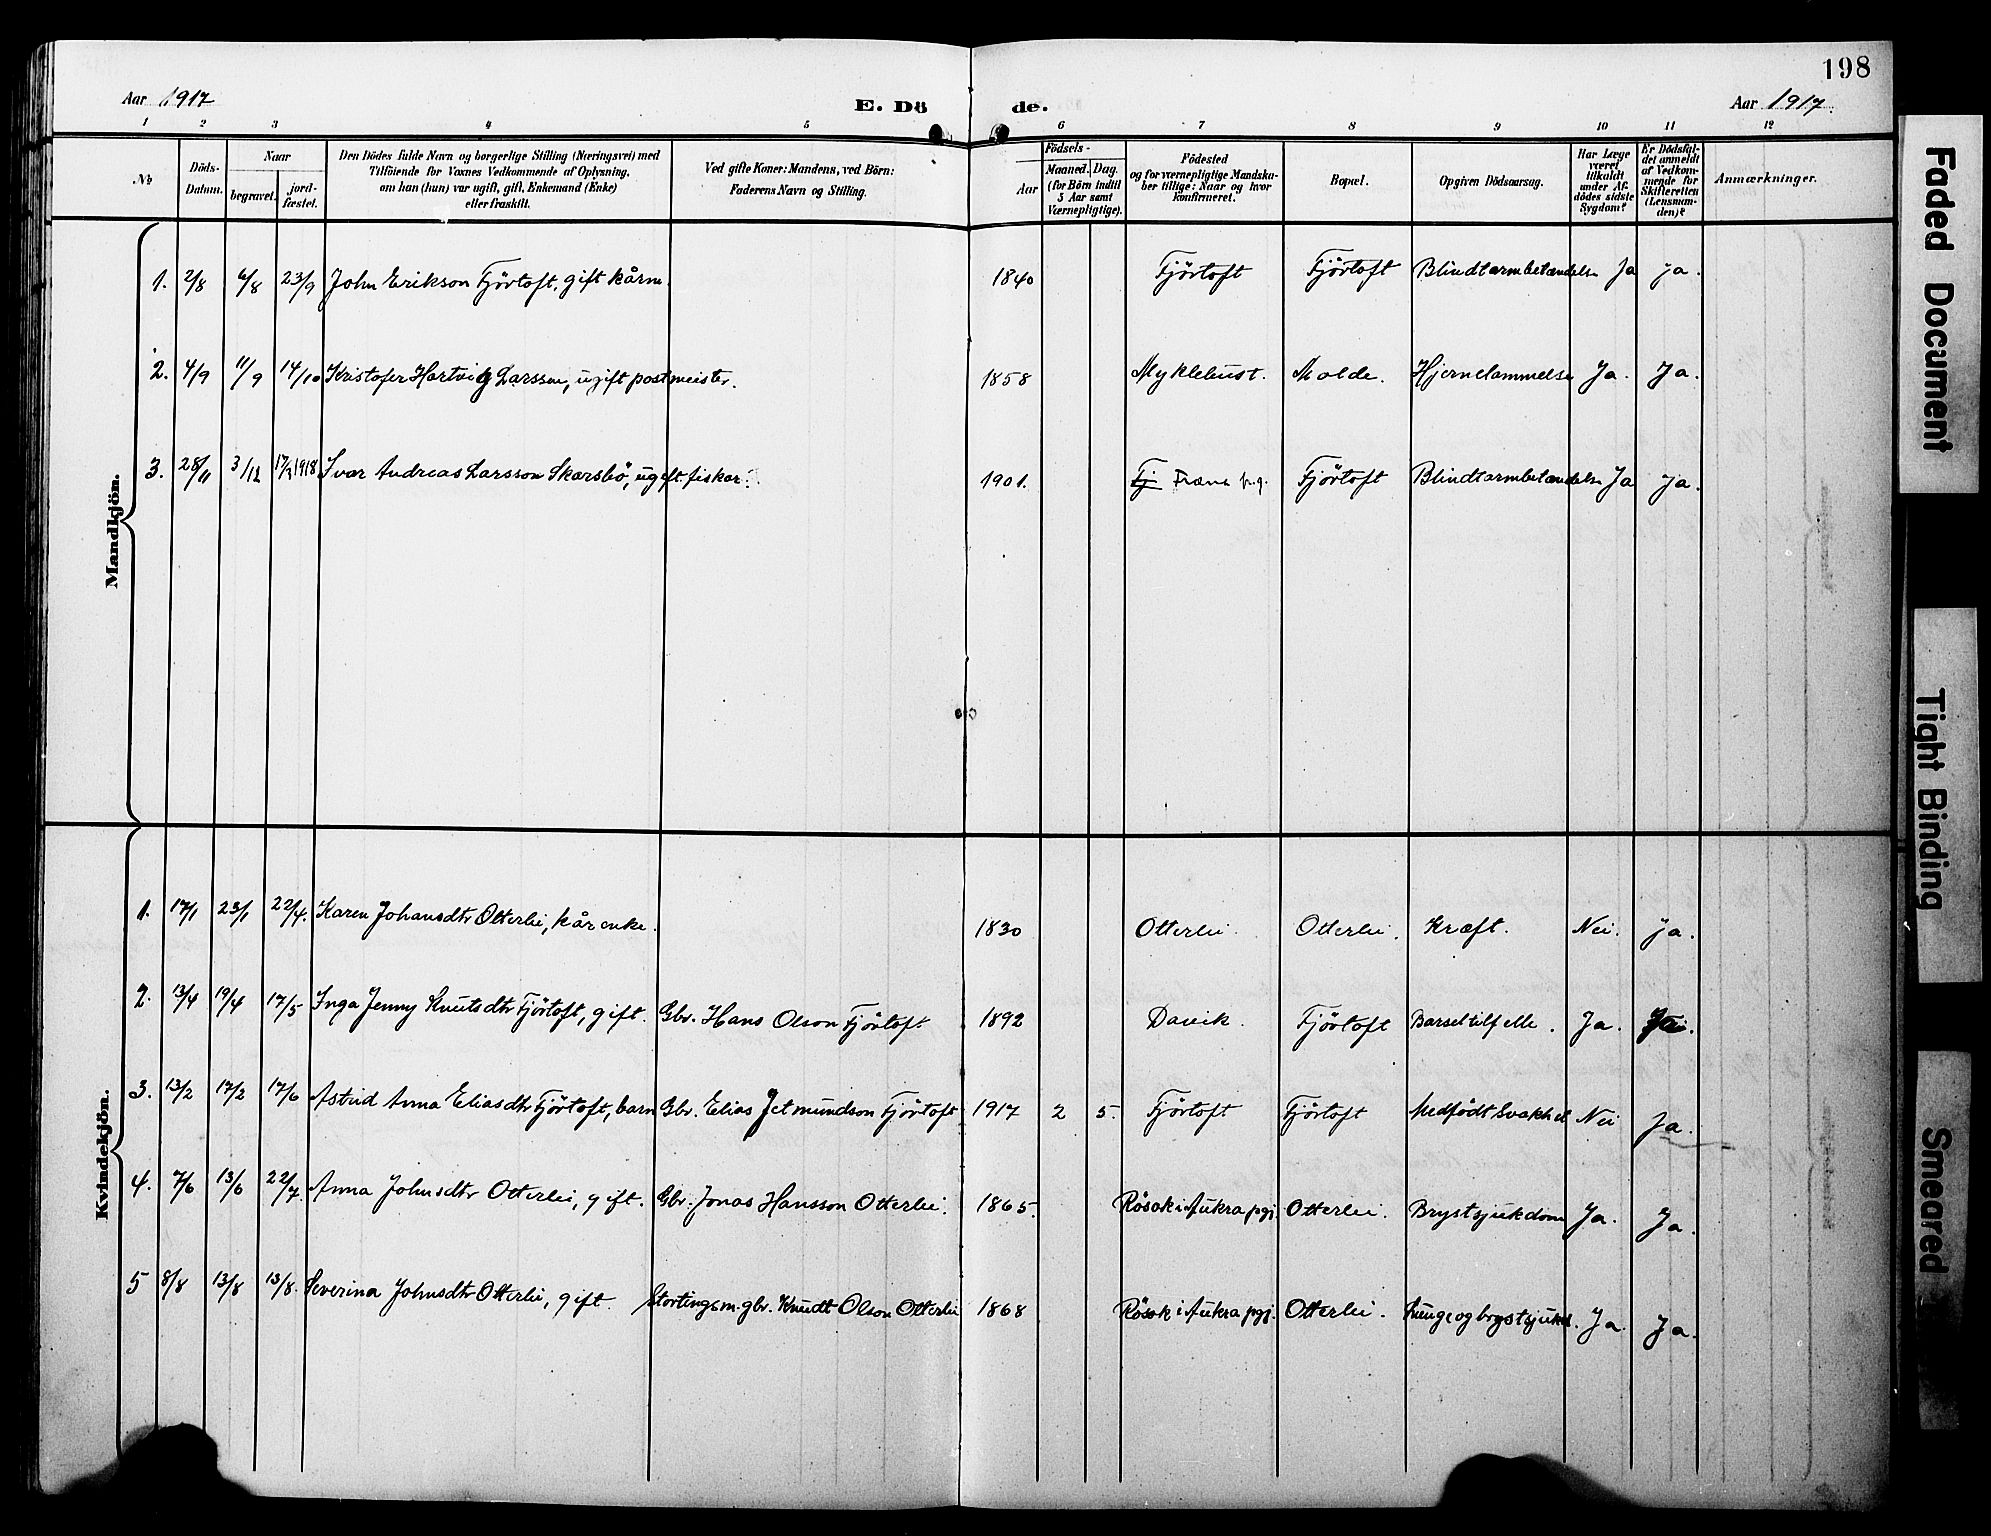 198
Aar 1917 E. Dö de. Aar 1917.
1 2 3 4 5 6 7 8 9 10 11 12
No
Döds-Datum.
Naar
begravet. jord-fæstet.
Den Dödes fulde Navn og borgerlige Stilling (Næringsvei) med
Tilföiende for Voxnes Vedkommende af Oplysning,
om han (hun) var ugift, gift, Enkemand (Enke)
eller fraskilt.
Ved gifte Koner: Mandens, ved Börn:
Faderens Navn og Stilling.
Födsels-
Aar Maaned. Dag.
(for Börn indtil
5 Aar samt
Værnepligtige).
Födested
og for værnepligtige Mandska-
ber tillige: Naar og hvor
konfirmeret.
Bopæl.
Opgiven Dödsaarsag.
Har Læge
været
tilkaldt
under Af-
dödes sidste
Sygdom?
Er Dödsfal-
det anmeldt
af Vedkom-
mende for
Skifteretten
(Lensman-
den)?
Anmærkninger.
Mandkjön.
1. 2/8 6/8 23/9 John Erikson Fjörtoft, gift kårm. 1840 Fjörtoft Fjörtoft Blindtarmbetændelse Ja ja.
2. 4/9 11/9 14/10 Kristofer Hartvig Larssen, ugift postmeister. 1858 Myklebust. Molde. Hjernelammelse Ja. Ja.
3. 28/11 3/12 17/2 1918 Ivar Andreas Larsson Skarsbö, ugift fiskar. 1901. Fj Fræna p.g. Fjörtoft Blindtarmbetændelse Ja ja.
Kvindekjön.
1. 17/1 23/1 22/4. Karen Johansdtr Otterlei, kårenke. 1830 Otterlei. Otterlei. Kræft. Nei. ja.
2. 13/4 19/4 17/5 Inga Jenny Knutsdtr Fjörtoft, gift. Gbr. Hans Olson Fjörtoft 1892 Davik. Fjörtoft Barseltilfelle. Ja.
3. 13/2 17/2 17/6 Astrid Anna Eliasdtr Fjörtoft, barn Gbr. Elias Jetmundson Fjörtoft 1917 2 5. Fjörtoft Fjörtoft Medfödt Svakhet Nei Ja.
4. 7/6 13/6 22/7. Anna Johnsdtr Otterlei, gift. Gbr. Jonas Hansson Otterlei. 1865. Rösok i Aukra pgj. Otterlei. Brystsjukdom Ja. Ja.
5 8/8 13/8 13/8. Severina Johnsdtr Otterlei, gift. Stortingsm. gbr. Knudt Olson Otterlei 1868 Rösok i Aukra pgj. Otterlei. Lunge og brystsjukd. Ja. Ja.
Faded Document
Tight Binding
Smeared